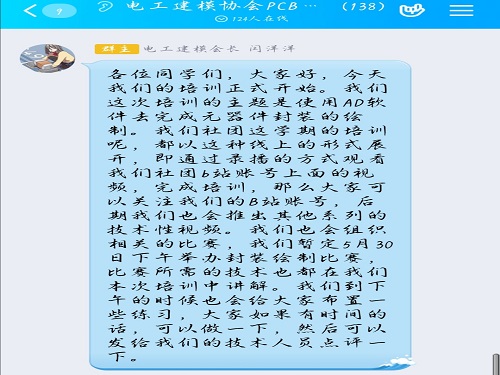 9
电工建模协会PCB…
(138)
124人在线
群主 电工建模会长 闪洋洋
各位同学们，大家好，今天
我们的培训正式开始。我们
这次培训的主题是使用AD软
件去完成元器件封装的绘
制。我们社团这学期的培训
呢，都以这种线上的形式展
开，即通过录播的方式观看
我们社团b站账号上面的视
频，完成培训，那么大家可
以关注我们的B站账号，后
期我们也会推出其他系列的
技术性视频。我们也会组织
相关的比赛，我们暂定5月30
日下午举办封装绘制比赛，
比赛所需的技术也都在我们
本次培训中讲解。我们到下
午的时候也会给大家布置一
些练习，大家如果有时间的
话，可以做一下，然后可以
发给我们的技术人员点评一
下。